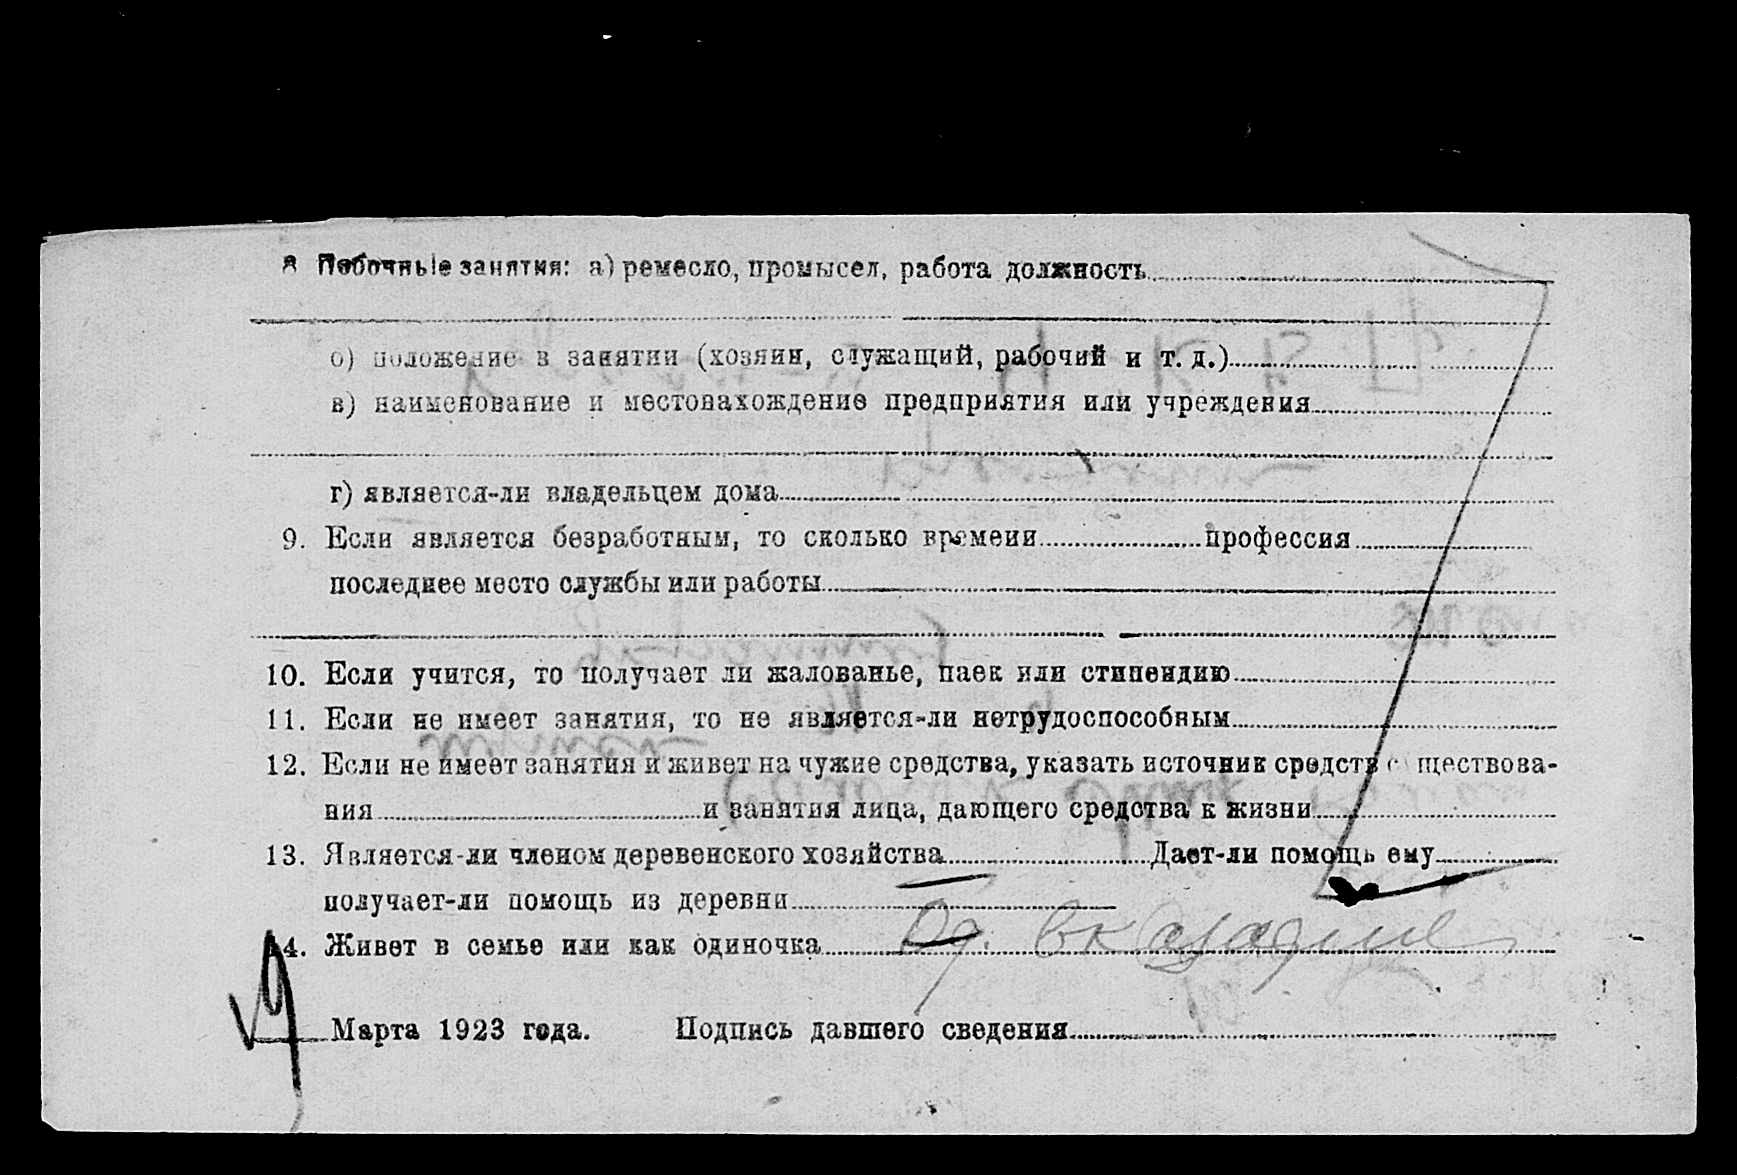 8 Побочные занятия: а) ремесло, промысел, работа должность
о) положение в занятии (хозяин, служащий, рабочий и т. д.)
в) наименование и местонахождение предприятия или учреждения
г) является-ли владельцем дома
9. Если является безработным, то сколько времени профессия
последнее место службы или работы
10. Если учится, то получает ли жалованье, паек или стипендию
11. Если не имеет занятия, то не является-ли нетрудоспособным
12. Если не имеет занятия и живет на чужие средства, указать источник средств существова-
ния и занятия лица, дающего средства к жизни
13. Является-ли членом деревенского хозяйства Дает-ли помощь ему
получает-ли помощь из деревни
14. Живет в семье или как одиночка Од.
Марта 1923 года. Подпись давшего сведения